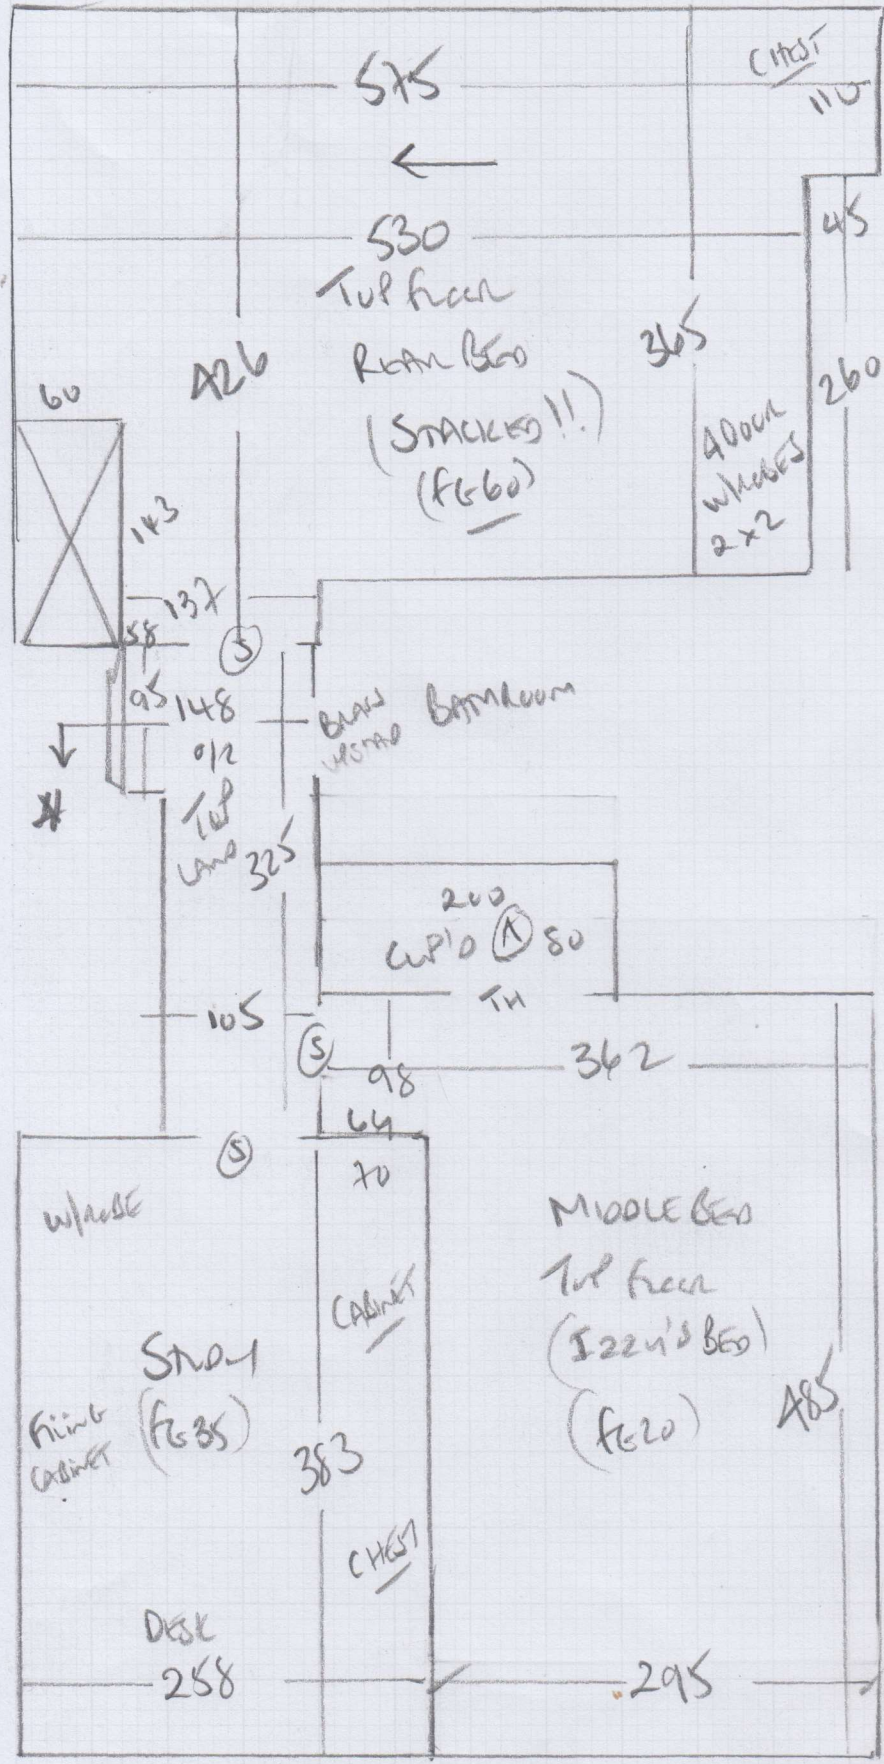 575
CHEST
110
530
45
TOP FLOOR
REAR BED
(STACKED!!)
(FG60)
426
365
260
4 DOOR
W/ROBES
2 x 2
60
143
137
58
S
95
148
O/R
TOP
LAND
325
BATHROOM
N
200
CUP'D A 80
TH
105
S
98
362
64
70
S
W/ROBE
CABINET
MIDDLE BED
TOP FLOOR
(IZZY'S BED)
(FG20)
485
STUDY
(FG35)
FILING
CABINET
383
CHEST
DESK
258
295